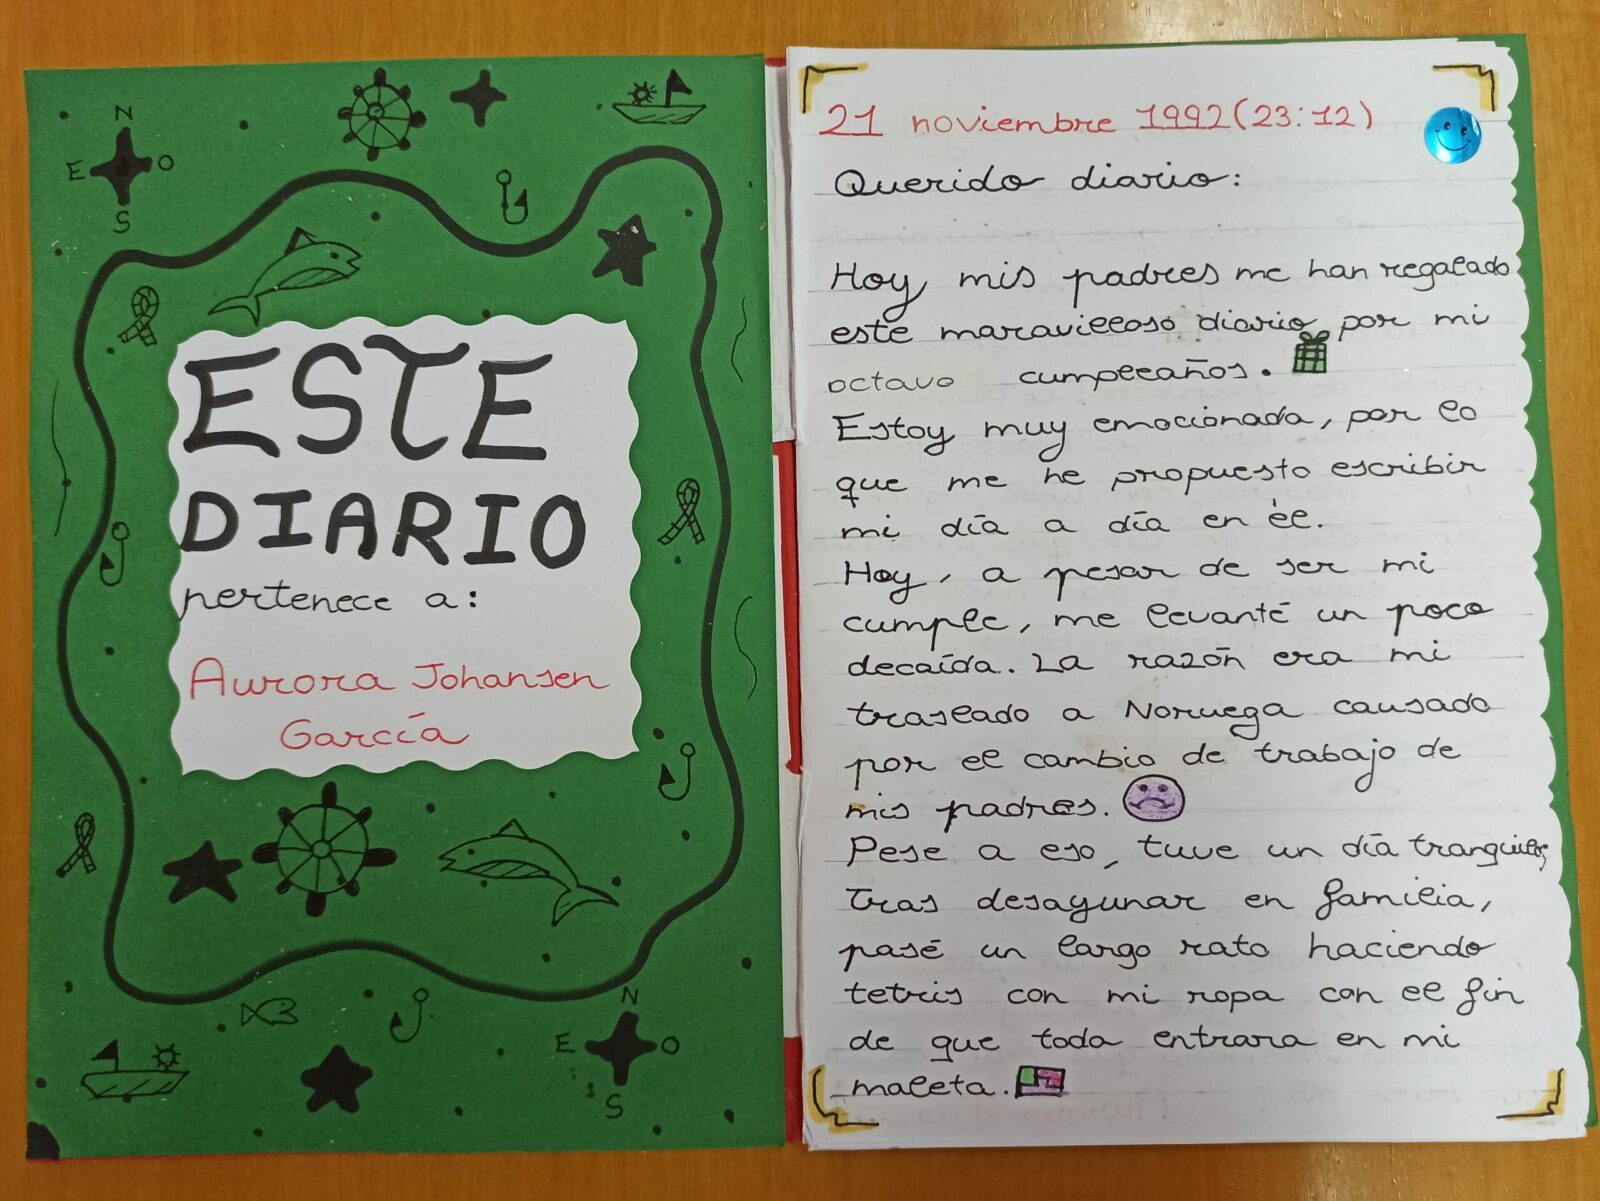 N
E O
S
ESTE
DIARIO
pertenece a:
Aurora Johansen
García
N
E O
S
21 noviembre 1992 (23:12)
Querido diario:
Hoy mis padres me han regalado
este maravilloso diario por mi
octavo cumpleaños.
Estoy muy emocionada, por lo
que me he propuesto escribir
mi día a día en él.
Hoy, a pesar de ser mi
cumple, me levanté un poco
decaída. La razón era mi
traslado a Noruega causado
por el cambio de trabajo de
mis padres.
Pese a eso, tuve un día tranquilo,
tras desayunar en familia,
pasé un largo rato haciendo
tetris con mi ropa con el fin
de que toda entrara en mi
maleta.